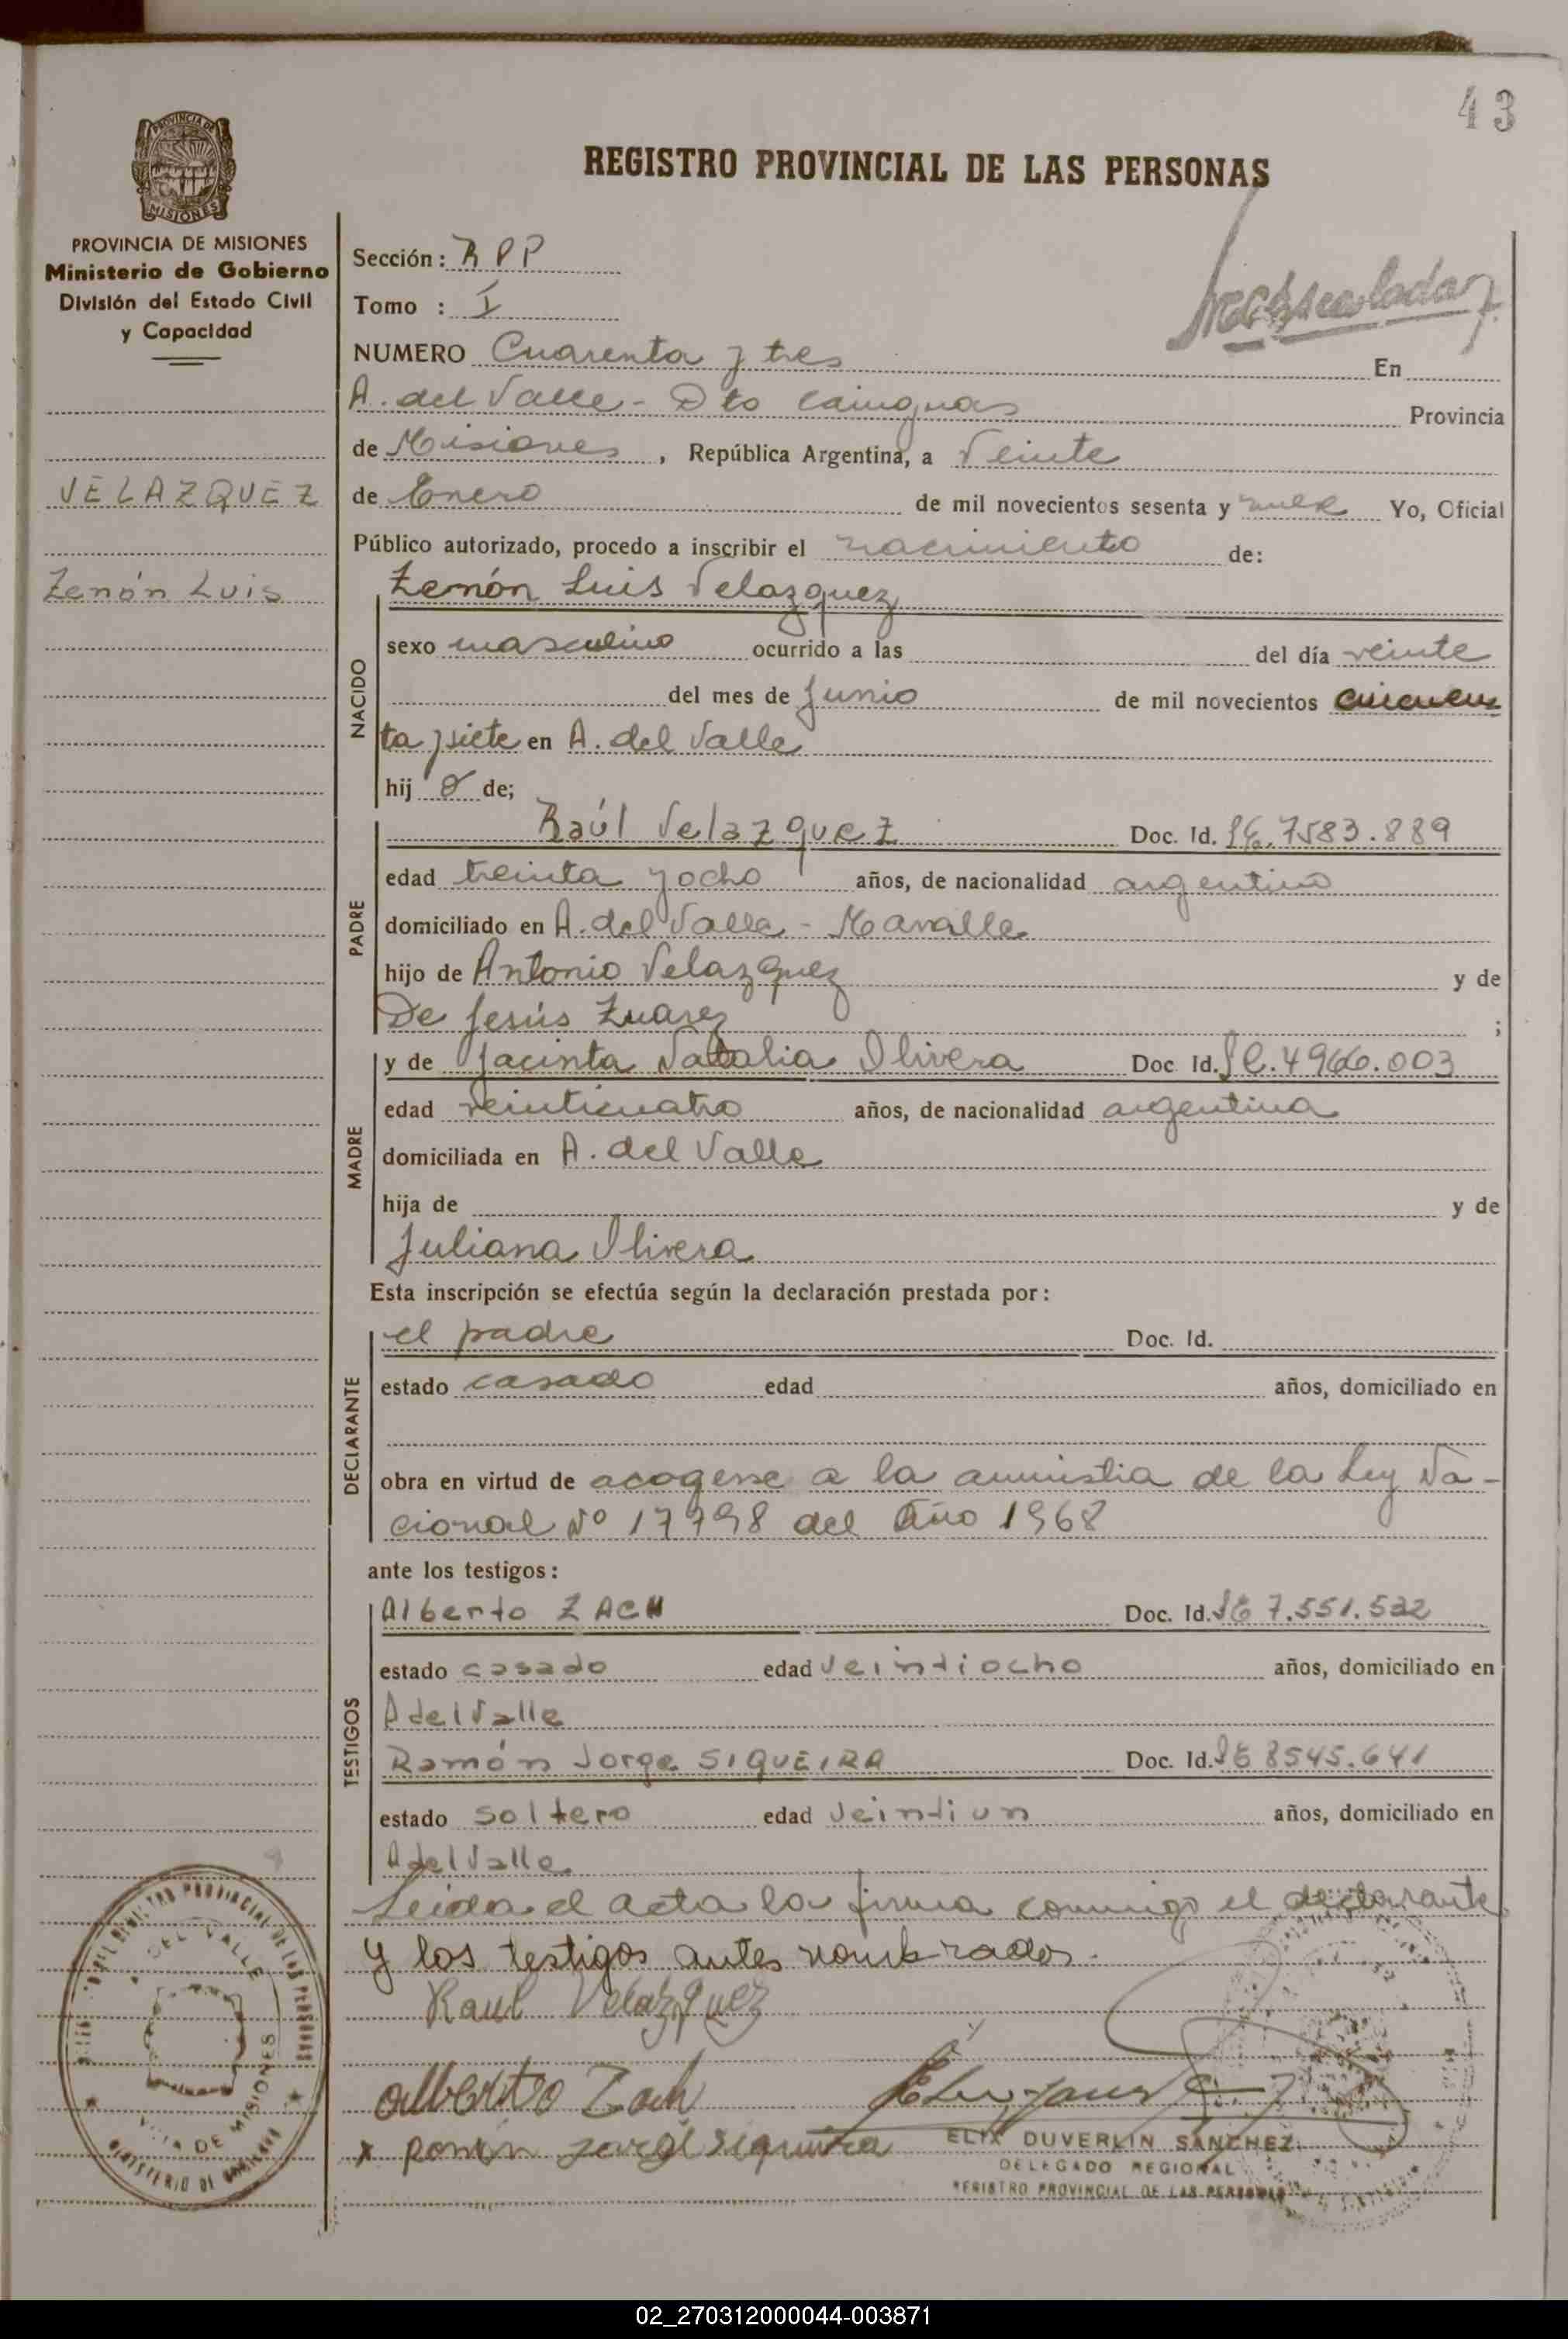 43
REGISTRO PROVINCIAL DE LAS PERSONAS
PROVINCIA DE
MISIONES
PROVINCIA DE MISIONES
Ministerio de Gobierno
División del Estado Civil
y Capacidad
VELAZQUEZ
Zenón Luis
Sección: R P P
Tomo : I
NUMERO Cuarenta y tres En
A. del Valle - Dto Cainguas Provincia
de Misiones, República Argentina, a Veinte
de Enero de mil novecientos sesenta y nueve Yo, Oficial
Público autorizado, procedo a inscribir el nacimiento de:
Zenón Luis Velazquez
NACIDO
sexo masculino ocurrido a las del día veinte
del mes de Junio de mil novecientos cincuen
ta y siete en A. del Valle
hij o de;
PADRE
Raúl Velazquez Doc. Id. LE. 7583.889
edad treinta y ocho años, de nacionalidad argentino
domiciliado en A. del Valle -
hijo de Antonio Velazquez y de
De Jesús Zuarez ;
MADRE
y de Jacinta Natalia Olivera Doc Id. LC. 4966.003
edad veinticuatro años, de nacionalidad argentina
domiciliada en A. del Valle
hija de y de
Juliana Olivera
Esta inscripción se efectúa según la declaración prestada por:
DECLARANTE
el padre Doc. Id.
estado casado edad años, domiciliado en
obra en virtud de acogerse a la amnistia de la Ley Na-
cional Nº 17798 del Año 1968
ante los testigos:
TESTIGOS
Alberto ZACH Doc. Id. LE 7.551.522
estado casado edad Veintiocho años, domiciliado en
A del Valle
Ramón Jorge SIQUEIRA Doc. Id. LE 8545.641
estado soltero edad Veintiun años, domiciliado en
A del Valle
Leida el acta la firma conmigo el declarante
y los testigos antes nombrados.
Raul Velazquez
Alberto Zach
x ramon jorge siqueira
ELIX DUVERLIN SANCHEZ
DELEGADO REGIONAL
REGISTRO PROVINCIAL DE LAS PERSONAS
REGISTRO PROVINCIAL DE LAS PERSONAS
A. DEL VALLE
MISIONES
MINISTERIO DE GOBIERNO
02_270312000044-003871